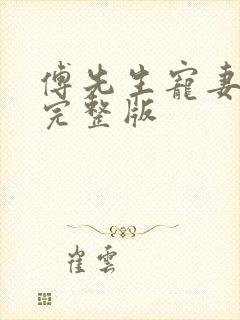 傅先生寵妻
完整版
崔雲